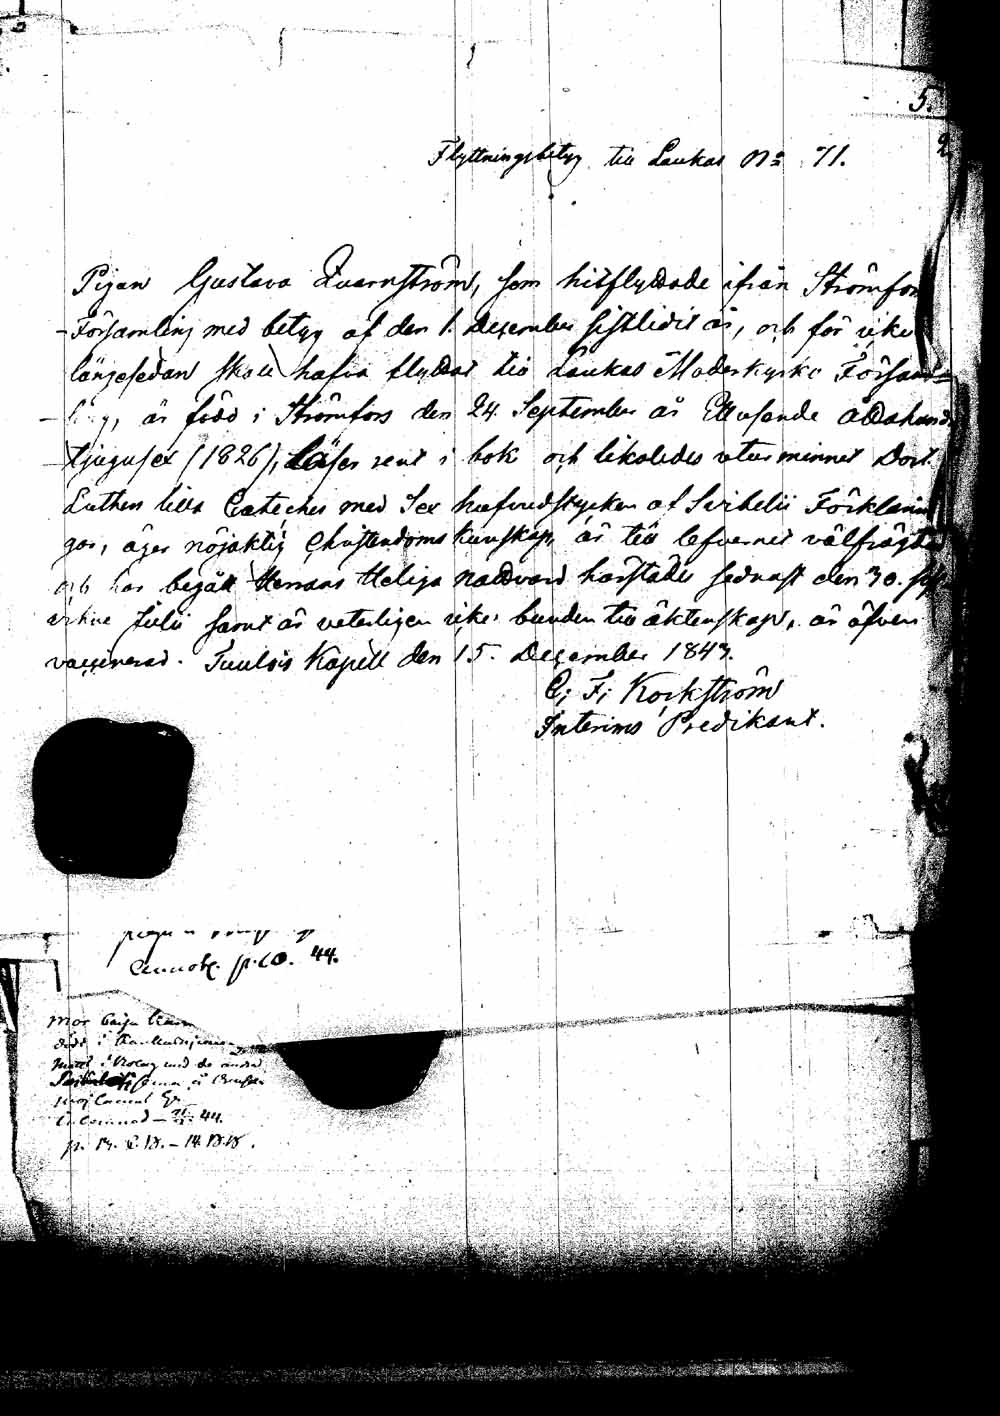 5.
Flyttningsbetyg till Laukas No 71.
Pigan Gustava Quarnström, som hitflyttade ifrån Strömfors
Församling med betyg af den 1. December sistlidit år, och för icke
längesedan skall hafva flyttat till Laukas Moderkyrko Försam=
ling, är född i Strömfors den 24. September år Ettusende Åttahund
tjugusex (1826), läser rent i bok och likaledes utur minnet Doct.
Luthers lilla Cateches med Sex hufvudstycken af Svibelii Förklarin
gar, äger nöjaktig Christendoms kunskap, är till lefvernet välfrägdad
och har begått Herrans Heliga Nattvard härstädes sednast den 30. sist
vikne Julii samt är veterligen icke bunden till äktenskap, är äfven
vaccinerad. Tuulois Kapell den 15. December 1843.
C. F. Kockström
Interims Predikant.
44.
44.